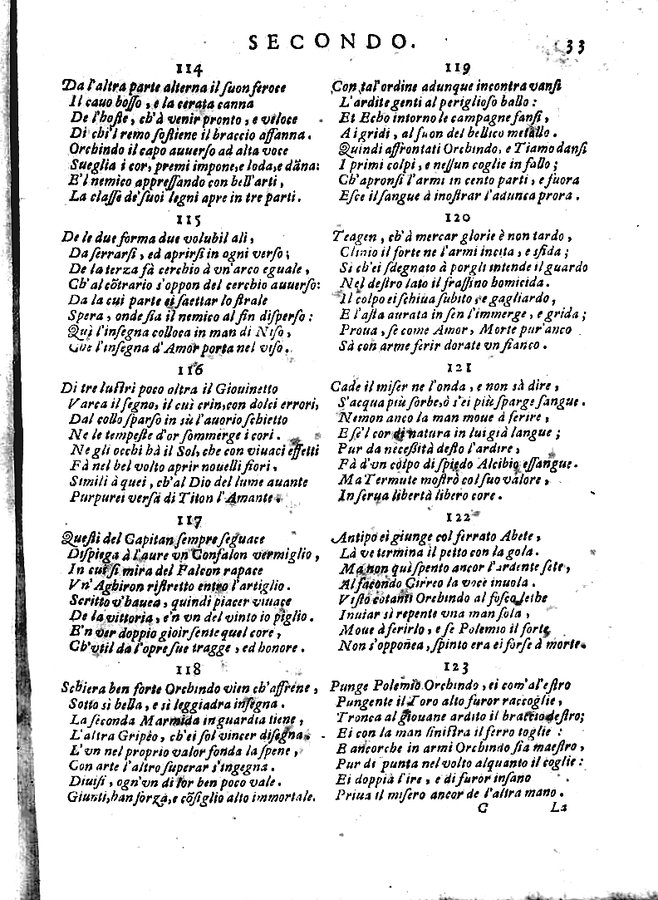 SECONDO. 33
114
Da l'altra parte alterna il suon feroce
Il cauo bosso, e la cerata canna
De l'hoste, ch'à venir pronto, e veloce
Di ch'il remo sostiene il braccio affanna.
Orchindo il capo auuerso ad alta voce
Sueglia i cor, premi impone, e loda, e dāna:
E'l nemico appressando con bell'arti,
La classe de' suoi legni apre in tre parti.
115
De le due forma due volubil ali,
Da serrarsi, ed aprirsi in ogni verso;
De la terza fà cerchio à vn'arco eguale,
Ch'al cōtrario s'oppon del cerchio auuerso:
Da la cui parte ei saettar lo strale
Spera, onde sia il nemico al fin disperso:
Quì l'insegna colloca in man di Niso,
Che l'insegna d'Amor porta nel viso.
116
Di tre lustri poco oltra il Giouinetto
Varca il segno, il cui crin, con dolci errori,
Dal collo sparso in sù l'auorio schietto
Ne le tempeste d'or sommerge i cori.
Ne gli occhi hà il Sol, che con viuaci effetti
Fà nel bel volto aprir nouelli fiori,
Simili à quei, ch'al Dio del lume auante
Purpurei versa di Titon l'Amante.
117
Questi del Capitan sempre seguace
Dispiega à l'aure vn Confalon vermiglio,
In cui si mira del Falcon rapace
Vn'Aghiron ristretto entro l'artiglio.
Scritto v'hauea, quindi piacer viuace
De la vittoria, e'n vn del vinto io piglio.
E'n ver doppio gioir sente quel core,
Ch'vtil da l'opre sue tragge, ed honore.
118
Schiera ben forte Orchindo vien ch'affrene,
Sotto sì bella, e sì leggiadra insegna.
La seconda Marmida in guardia tiene,
L'altra Gripèo, ch'ei sol vincer disegna.
L'vn nel proprio valor fonda la spene,
Con arte l'altro superar s'ingegna.
Diuisi, ogn'vn di lor ben poco vale.
Giunti, han forza, e cōsiglio alto immortale.
119
Con tal'ordine adunque incontra vansi
L'ardite genti al periglioso ballo:
Et Echo intorno le campagne fansi,
A i gridi, al suon del bellico metallo.
Quindi affrontati Orchindo, e Tiamo dansi
I primi colpi, e nessun coglie in fallo;
Ch'apronsi l'armi in cento parti, e fuora
Esce il sangue à inostrar l'adunca prora.
120
Teagen, ch'à mercar glorie è non tardo,
Clinio il forte ne l'armi incita, e sfida;
Si ch'ei sdegnato à porgli intende il guardo
Nel destro lato il frassino homicida.
Il colpo ei schiua subito, e gagliardo,
E l'asta aurata in sen l'immerge, e grida;
Proua, se come Amor, Morte pur'anco
Sà con arme ferir dorate vn fianco.
121
Cade il miser ne l'onda, e non sà dire,
S'acqua più sorbe, ò s'ei più sparge sangue.
Nemon anco la man moue à ferire,
E se'l cor di natura in lui già langue;
Pur da necessità desto l'ardire,
Fà d'vn colpo di spiedo Alcibio essangue.
Ma Termute mostrò col suo valore,
In serua libertà libero core.
122
Antipo ei giunge col ferrato Abete,
Là ve termina il petto con la gola.
Ma non quì spento ancor l'ardente sete,
Al facondo Cirreo la voce inuola.
Visto cotanti Orchindo al fosco Lethe
Inuiar sì repente vna man sola,
Moue à ferirlo, e se Polemio il forte
Non s'opponea, spinto era ei forse à morte.
123
Punge Polemio Orchindo, ei com'al'estro
Pungente il Toro alto furor raccoglie,
Tronca al giouane ardito il braccio destro;
Ei con la man sinistra il ferro toglie:
E ancorche in armi Orchindo sia maestro,
Pur di punta nel volto alquanto il coglie:
Ei doppia l'ire, e di furor insano
Priua il misero ancor de l'altra mano.
C La